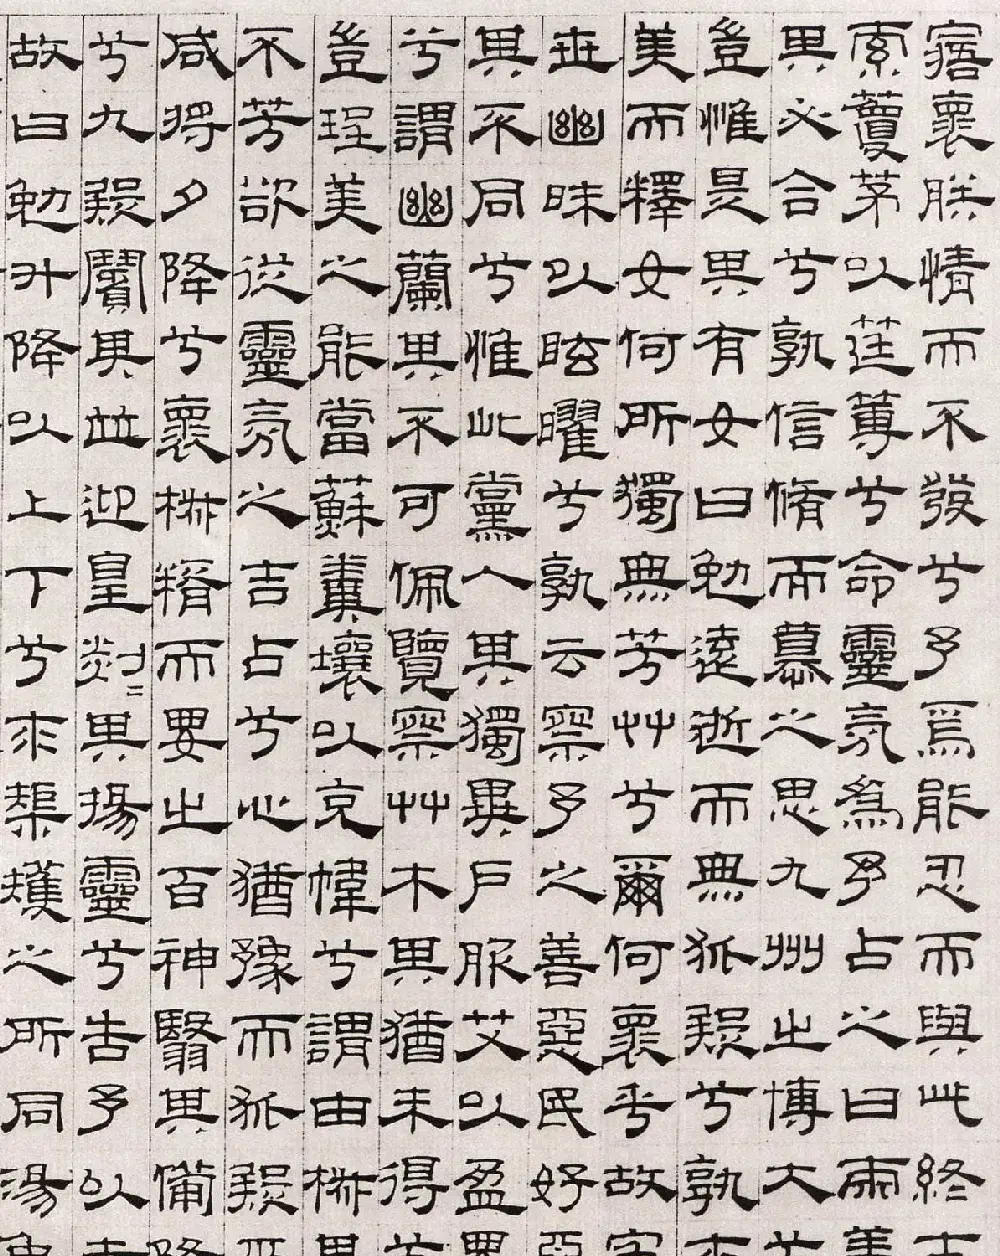 寤懷朕情而不發兮予焉能忍而與此終古
索藑茅以筳篿兮命靈氛爲予占之曰兩美
其必合兮孰信脩而慕之思九州之博大兮
豈惟是其有女曰勉遠逝而無狐疑兮孰求
美而釋女何所獨無芳艸兮爾何懷乎故宇
世幽昧以眩曜兮孰云察予之善惡民好惡
其不同兮惟此黨人其獨異戶服艾以盈要
兮謂幽蘭其不可佩覽察艸木其猶未得兮
豈珵美之能當蘇糞壤以充幃兮謂申椒其
不芳欲從靈氛之吉占兮心猶豫而狐疑巫
咸將夕降兮懷椒糈而要之百神翳其備降
兮九疑繽其並迎皇剡〻其揚靈兮告予以吉
故曰勉升降以上下兮求榘矱之所同湯禹